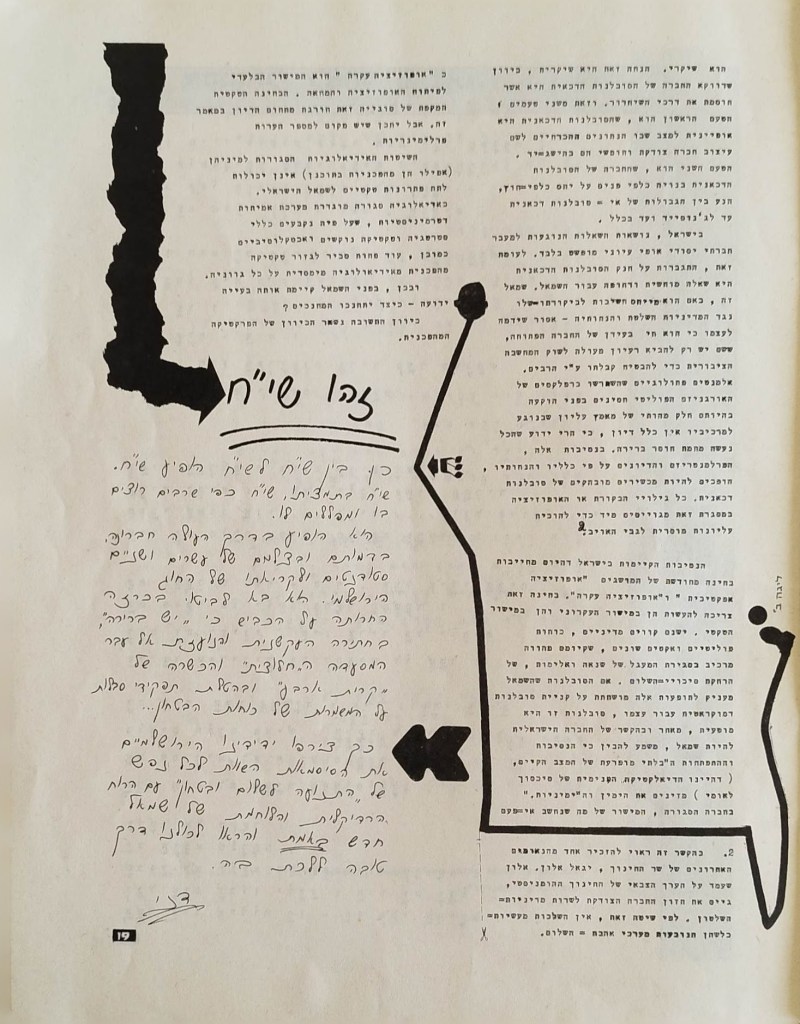 הוא שיקרי. הנחה זאת היא שיקרית , כיוון
שדווקא החברה של הסובלנות הדכאנית היא אשר
חוסמת את דרכי השיחרור. וזאת משני טעמים :
הטעם הראשון הוא , שהסובלנות הדכאנית היא
אופיינית למצב שבו הנתונים ההכרחיים לשם
עיצוב חברה צודקת וחופשי הם בהישג=יד .
הטעם השני הוא , שהחברה של הסובלנות
הדכאנית בנויה כלפי פנים על יחס כלפי=חוץ,
הנע בין הגבולות של אי = סובלנות דכאנית
עד לג'נוסייד ועד בכלל .
בישראל , נושאות השאלות הנוגעות למעבר
חברתי יסודי אופי עיוני מופשט בלבד. לעומת
זאת , התגברות על חנק הסובלנות הדכאנית
היא שאלה מוחשית ודחופה עבור השמאל. שמאל
זה , באם הוא מייחס חשיבות לביקורתו=שלו
נגד המדיניות השלטת והנחותיה - אסור שידמה
לעצמו כי הוא חי בעידן של החברה הפתוחה,
ששם יש רק להביא רעיון מעולה לשוק המחשבה
הציבורית כדי להבטיח קבלתו ע"י הרבים.
אלמנטים פתולוגיים שהשתרשו כרפלקסים של
האורגניזם הפוליטי חסינים בפני הוקעה
בהיותם חלק מהותי של מאמץ עליון שבנוגע
למרכיביו אין כלל דיון , כי הרי ידוע שהכל
נעשה מחמת חוסר ברירה. בנסיבות אלה ,
הפרלמנטריזם והדיונים על פי כלליו והנחותיו ,
הופכים להיות מכשירים מובהקים של סובלנות
דכאנית. כל גילויי הבקורת או האופוזיציה
במסגרת זאת מגוייסים מיד כדי להוכיח
עליונות מוסרית לגבי האויב. 2
הנסיבות הקיימות בישראל דהיום מחייבות
בחינה מחודשת של המושגים "אופוזיציה
אפקטיבית " ו"אופוזיציה עקרה". בחינה זאת
צריכה להעשות הן במישור העקרוני והן במישור
הטקטי . ישנם קווים מדיניים , כוחות
פוליטיים ואקטים שונים , שקיומם מהווה
מרכיב בסגירת המעגל של שנאה ואלימות , של
הרחקת סיכויי=השלום . אם הסובלנות שהשמאל
מעניק לתופעות אלה מושתתת על קניית סובלנות
דמוקראטית עבור עצמו , סובלנות זו היא
מוטעית , מאחר ובהקשר של החברה הישראלית
להיות שמאל , משמע להבין כי הנסיבות
וההתפתחות ה"בלתי מופרעת של המצב הקיים,
( דהיינו הדיאלקטיקה הפנימית של סיכסוך
לאומי ) מזינים את הימין וה"ימיניות."
בחברה הסגורה , המישור של מה שנחשב אי=פעם
2. בהקשר זה ראוי להזכיר אחד מהנאומים
האחרונים של שר החינוך , יגאל אלון. אלון
שעמד על הערך הצבאי של החינוך ההומניסטי,
גייס את חזון החברה הצודקת לשרות מדיניות=
השלטון . לפי שיטה זאת , אין השלכות מעשיות=
כלשהן הנובעות מערכי אהבת = השלום.
כ "אופוזיציה עקרה " הוא המישור הבלעדי
לפיתוח האופוזיציה והמחאה . הבחינה הטקטית
המקפת של סוגייה זאת חורגת מתחום הדיון במאמר
זה. אבל יתכן שיש מקום למספר הערות
פרלימינריות .
השיטות האידיאולוגיות הסגורות למיניהן
(אפילו הן מהפכניות בתוכנן) אינן יכולות
לתת פתרונות טקטיים לשמאל הישראלי.
כאידיאולוגיה סגורה מוגדרת מערכת אמיתות
דטרמיניסטיות , שעל פיה נקבעים כללי
סטרטגיה וטקטיקה נוקשים ואכסקלוסיביים
כמובן , עוד פחות סביר לגזור טקטיקה
מהפכנית מאידיאולוגיה מימסדית על כל גווניה.
ובכן , בפני השמאל קיימת אותה בעייה
ידועה - כיצד יתחנכו המחנכים ?
כיוון התשובה נשאר הכיוון של הפרקטיקה
המהפכנית.
זהו שי"ח
כן בין שי"ח לשי"ח הופיע שי"ח.
שי"ח בתמציתו, שי"ח כפי שרבים רוצים
בו ומפללים לו.
הוא הופיע בדרך העולה חברונה,
בדמותם ובצלמם של עשרים ושניים
סטודנטים ולקריאתו של החוג
הירושלמי. הוא בא לביטוי בכרזה
החרותה על הכביש כי "יש ברירה",
בחתירה העקשנית והנועזת אל עבר
המסעדה ה"חלוצית" והכשרה של
"קרית ארבע" ובהטלת תפקידי סבלות
על המשמרות של כוחות הבטחון...
כך צירפו ידידינו הירושלמיים
את הסיסמאות השוות לכל נפש
של "התנועה לשלום ובטחון" עם הרוח
הרדיקלית והלוחמת של שמאל
חדש באמת והראו לכולנו דרך
טובה ללכת בה.
19